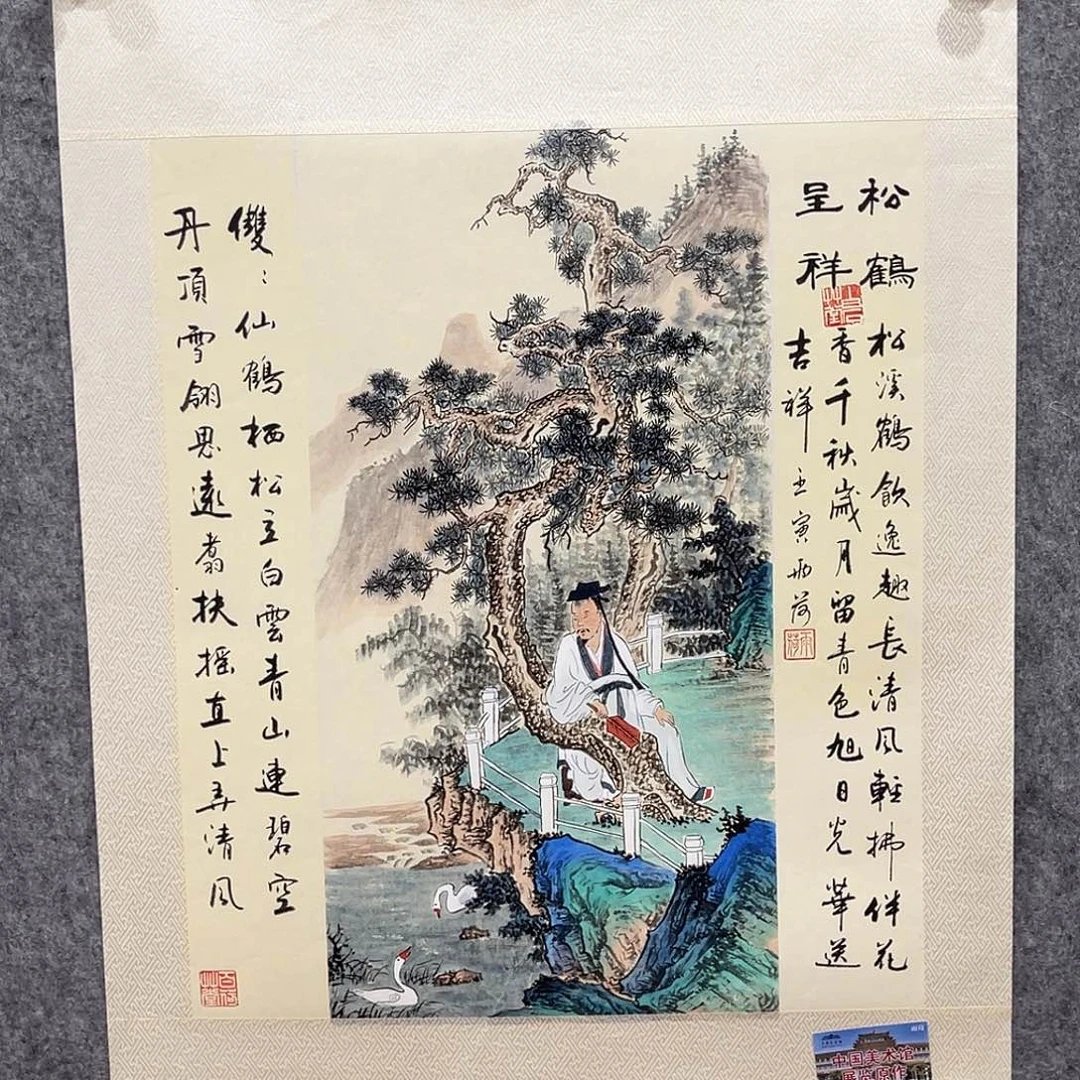 松鶴
呈祥
松溪鶴飲逸趣長清風輕拂伴花
香千秋歲月留青色旭日光華送
吉祥 壬寅雨荷
雨荷
雙〻仙鶴栖松立白雲青山連碧空
丹頂雪翎思遠翥扶搖直上弄清風
中国美术馆
展览原作